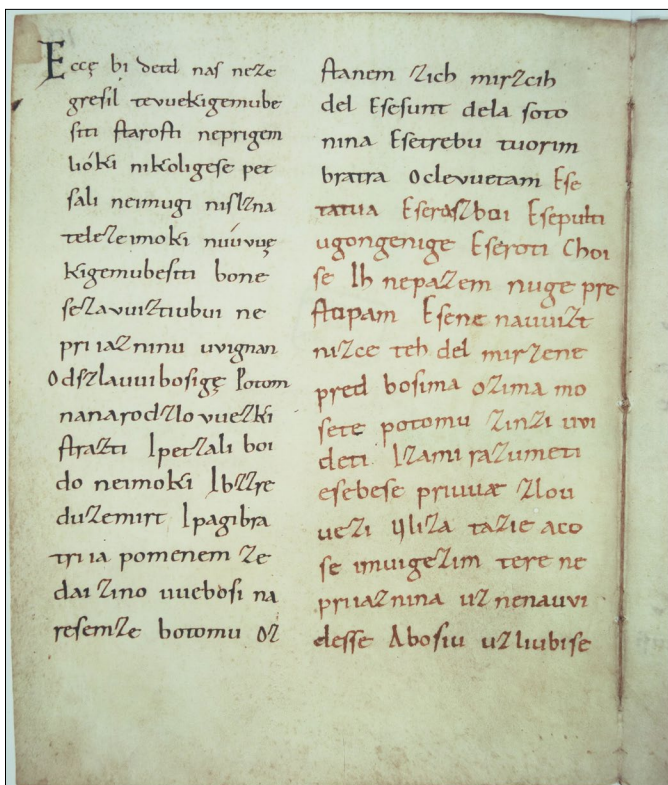 Eccę bi detd naſ neze
greſil tevuekigemube
ſiti ſtaroſti neprigem
lióki nikoligeſe pet
ſali neimugi niſlzna
teleze imoki nuúvuę
kigemubeſiti bone
ſezavuiztiubui ne
pri iazninu uvignan
Odſzlauuiboſigę Potom
nanarodzlovuezki
ſtrazti Ipetzali boi
do neimoki Ibzzre
duzemirt Ipagibra
tri ia pomenem ze
dai zino uueboſi na
reſemze botomu oz
ſtanem zich mirzcih
del Eſeſunt dela ſoto
nina Eſetrebu tuorim
bratra Oclevuetam Eſe
tatua Eſeraſzboi Eſepulti
ugongenige Eſeroti Choi
ſe Ih nepazem nuge pre
ſtopam Eſene nauuizt
nizce teh del mirzene
pred boſima ozima mo
ſete potomu zinzi uvi
deti Izami razumeti
eſebeſe priuuæ zlou
uezi yliza tazie aco
ſe imuigezim tere ne
priiaznina uz nenauvi
deſſe Aboſiu uzliubiſe